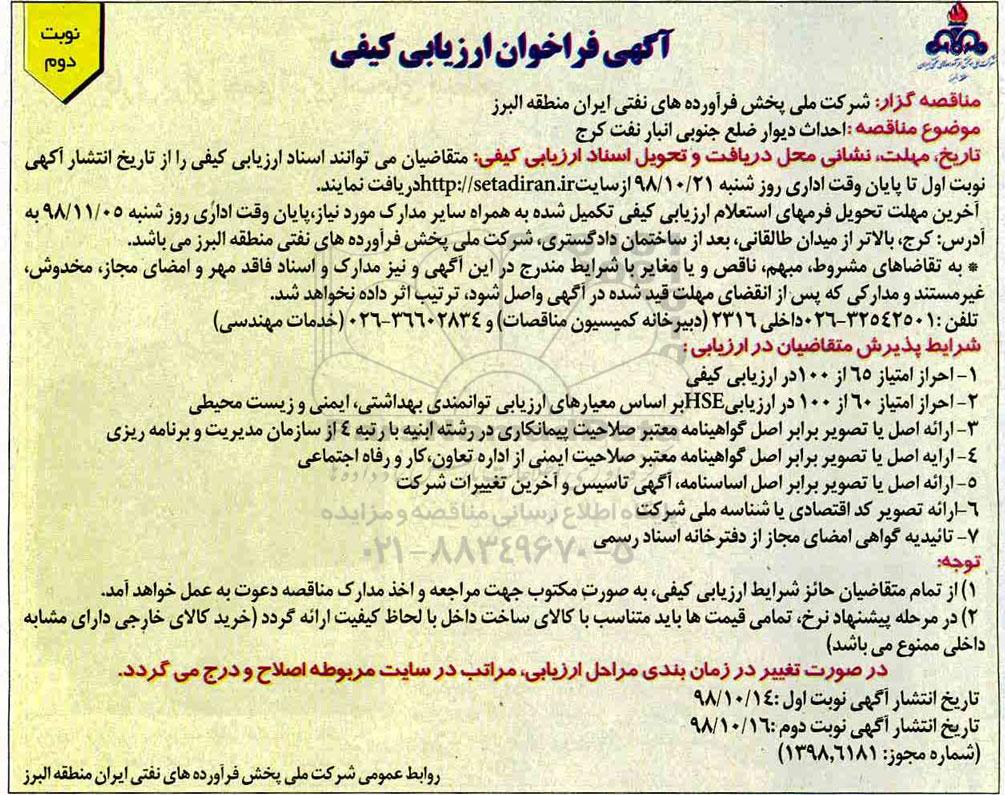 نوبت
دوم
آگهی فراخوان ارزیابی کیفی
شرکت ملی پخش فرآورده‌های نفتی ایران
مناقصه گزار: شرکت ملی پخش فرآورده های نفتی ایران منطقه البرز
موضوع مناقصه :احداث دیوار ضلع جنوبی انبار نفت کرج
تاریخ، مهلت، نشانی محل دریافت و تحویل اسناد ارزیابی کیفی: متقاضیان می توانند اسناد ارزیابی کیفی را از تاریخ انتشار آگهی
نوبت اول تا پایان وقت اداری روز شنبه ۹۸/۱۰/۲۱ ازسایتhttp://setadiran.irدریافت نمایند.
آخرین مهلت تحویل فرمهای استعلام ارزیابی کیفی تکمیل شده به همراه سایر مدارک مورد نیاز،پایان وقت اداری روز شنبه ۹۸/۱۱/۰۵ به
آدرس: کرج، بالاتر از میدان طالقانی، بعد از ساختمان دادگستری، شرکت ملی پخش فرآورده های نفتی منطقه البرز می باشد.
* به تقاضاهای مشروط، مبهم، ناقص و یا مغایر با شرایط مندرج در این آگهی و نیز مدارک و اسناد فاقد مهر و امضای مجاز، مخدوش،
غیرمستند و مدارکی که پس از انقضای مهلت قید شده در آگهی واصل شود، ترتیب اثر داده نخواهد شد.
تلفن :۳۲۵٤۲۵۰۱-۰۲۶داخلی ۲۳۱۶ (دبیرخانه کمیسیون مناقصات) و ۳۶۶۰۲۸۳٤-۰۲۶ (خدمات مهندسی)
شرایط پذیرش متقاضیان در ارزیابی :
۱- احراز امتیاز ۶۵ از ۱۰۰در ارزیابی کیفی
۲- احراز امتیاز ۶۰ از ۱۰۰ در ارزیابیHSEبر اساس معیارهای ارزیابی توانمندی بهداشتی، ایمنی و زیست محیطی
۳- ارائه اصل یا تصویر برابر اصل گواهینامه معتبر صلاحیت پیمانکاری در رشته ابنیه با رتبه ٤ از سازمان مدیریت و برنامه ریزی
٤- ارایه اصل یا تصویر برابر اصل گواهینامه معتبر صلاحیت ایمنی از اداره تعاون،کار و رفاه اجتماعی
۵- ارائه اصل یا تصویر برابر اصل اساسنامه، آگهی تاسیس و آخرین تغییرات شرکت
۶-ارائه تصویر کد اقتصادی یا شناسه ملی شرکت
پایگاه اطلاع رسانی مناقصه و مزایده
۷- تائیدیه گواهی امضای مجاز از دفترخانه اسناد رسمی
۰۲۱-۸۸۳٤۹۶۷۰-۵
توجه:
۱) از تمام متقاضیان حائز شرایط ارزیابی کیفی، به صورت مکتوب جهت مراجعه و اخذ مدارک مناقصه دعوت به عمل خواهد آمد.
۲) در مرحله پیشنهاد نرخ، تمامی قیمت ها باید متناسب با کالای ساخت داخل با لحاظ کیفیت ارائه گردد (خرید کالای خارجی دارای مشابه
داخلی ممنوع می باشد)
در صورت تغییر در زمان بندی مراحل ارزیابی، مراتب در سایت مربوطه اصلاح و درج می گردد.
تاریخ انتشار آگهی نوبت اول :۹۸/۱۰/۱٤
تاریخ انتشار آگهی نوبت دوم :۹۸/۱۰/۱۶
(شماره مجوز: ۱۳۹۸,۶۱۸۱)
روابط عمومی شرکت ملی پخش فرآورده های نفتی ایران منطقه البرز